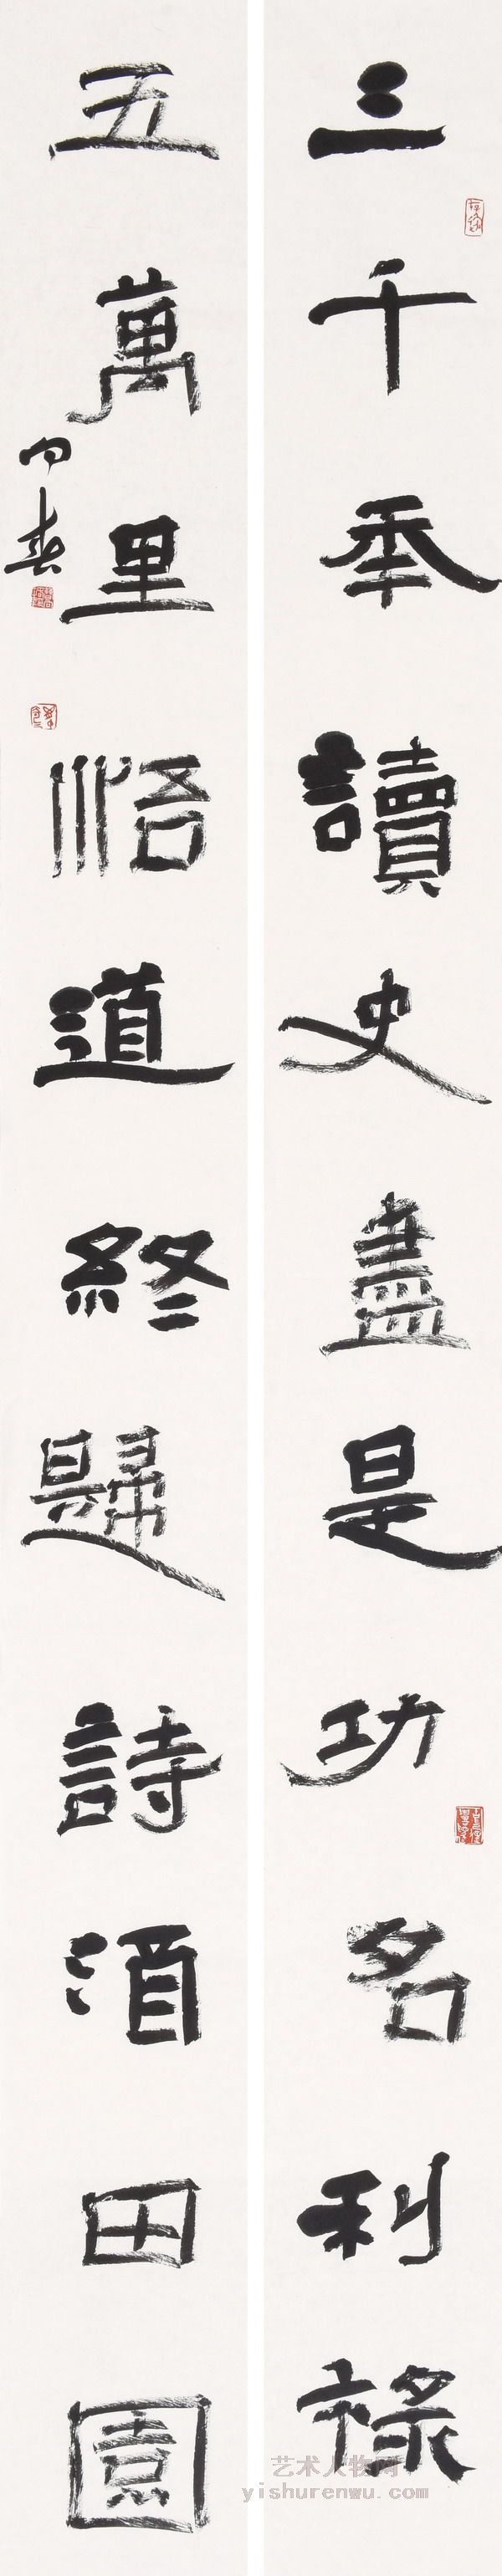 三千季讀史盡是功名利祿
五萬里悟道終歸詩酒田園
向春
艺术人物网
yishurenwu.com